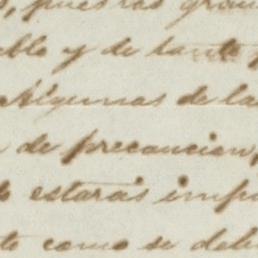 , puestas gran
ble y de tanto
Algunas de la
de precaucion,
estarás imp
to como se deb